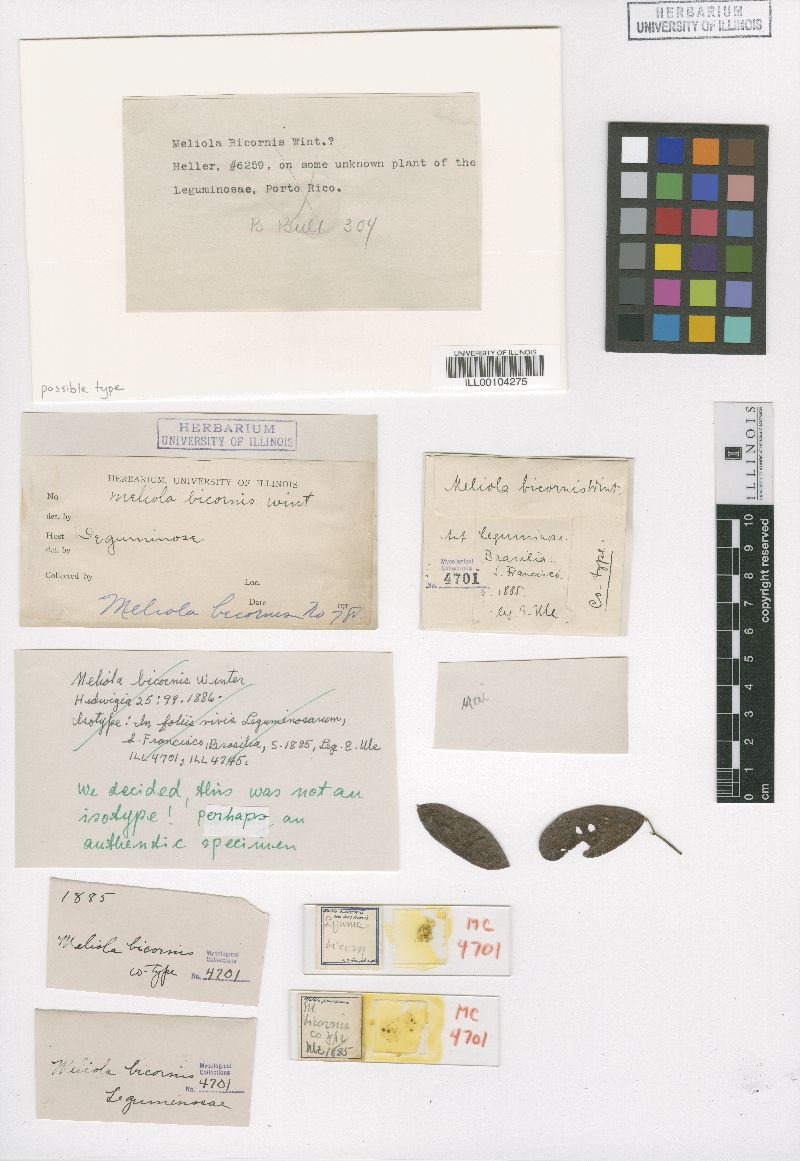 HERBARIUM
UNIVERSITY OF ILLINOIS
Meliola Bicornis Wint.?
Heller, #6259, on some unknown plant of the
Leguminosae, Porto Rico.
B Bull 304
possible type
UNIVERSITY OF ILLINOIS
ILL00104275
HERBARIUM
UNIVERSITY OF ILLINOIS
HERBARIUM, UNIVERSITY OF ILLINOIS
No. Meliola bicornis Wint
det. by
Host Leguminose
det. by
Collected by
Loc.
Date 191
Meliola bicornis No 78
Meliola bicornis Wint.
Auf Leguminose.
Brasilia.
S. Francisco.
5. 1885.
leg E. Ule
Co. type.
Mycological
Collections
No. 4701
Meliola bicornis Winter
Hedwigia 25:99. 1886.
Isotype: In foliis vivis Leguminosarum,
S. Francisco, Brasilia, 5-1885, Leg. E. Ule
ILL 4701, ILL 4745.
We decided this was not an
isotype! perhaps an
authentic specimen
1885
Meliola bicornis
co-type
Mycological
Collections
No. 4701
Meliola bicornis
Leguminosae
Mycological
Collections
No. 4701
Legume
bicorn
MC
4701
M
bicornis
co type
Ule 1885
MC
4701
ILLINOIS
copyright reserved
10
9
8
7
6
5
4
3
2
1
0
cm